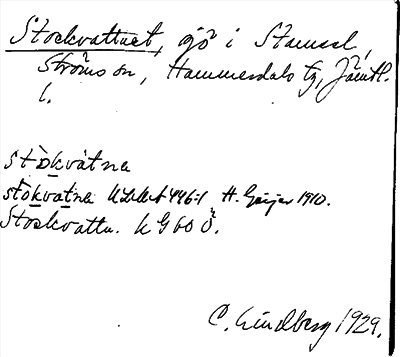 Stockvattnet, sjö i Stamsel,
Ströms sn, Hammerdals tg, Jämtl.
l.
stòkvàtna
stòkvàtna H. Geijer 1910.
Stockvattn. KG 60 Ö.
C. Lindberg 1929.